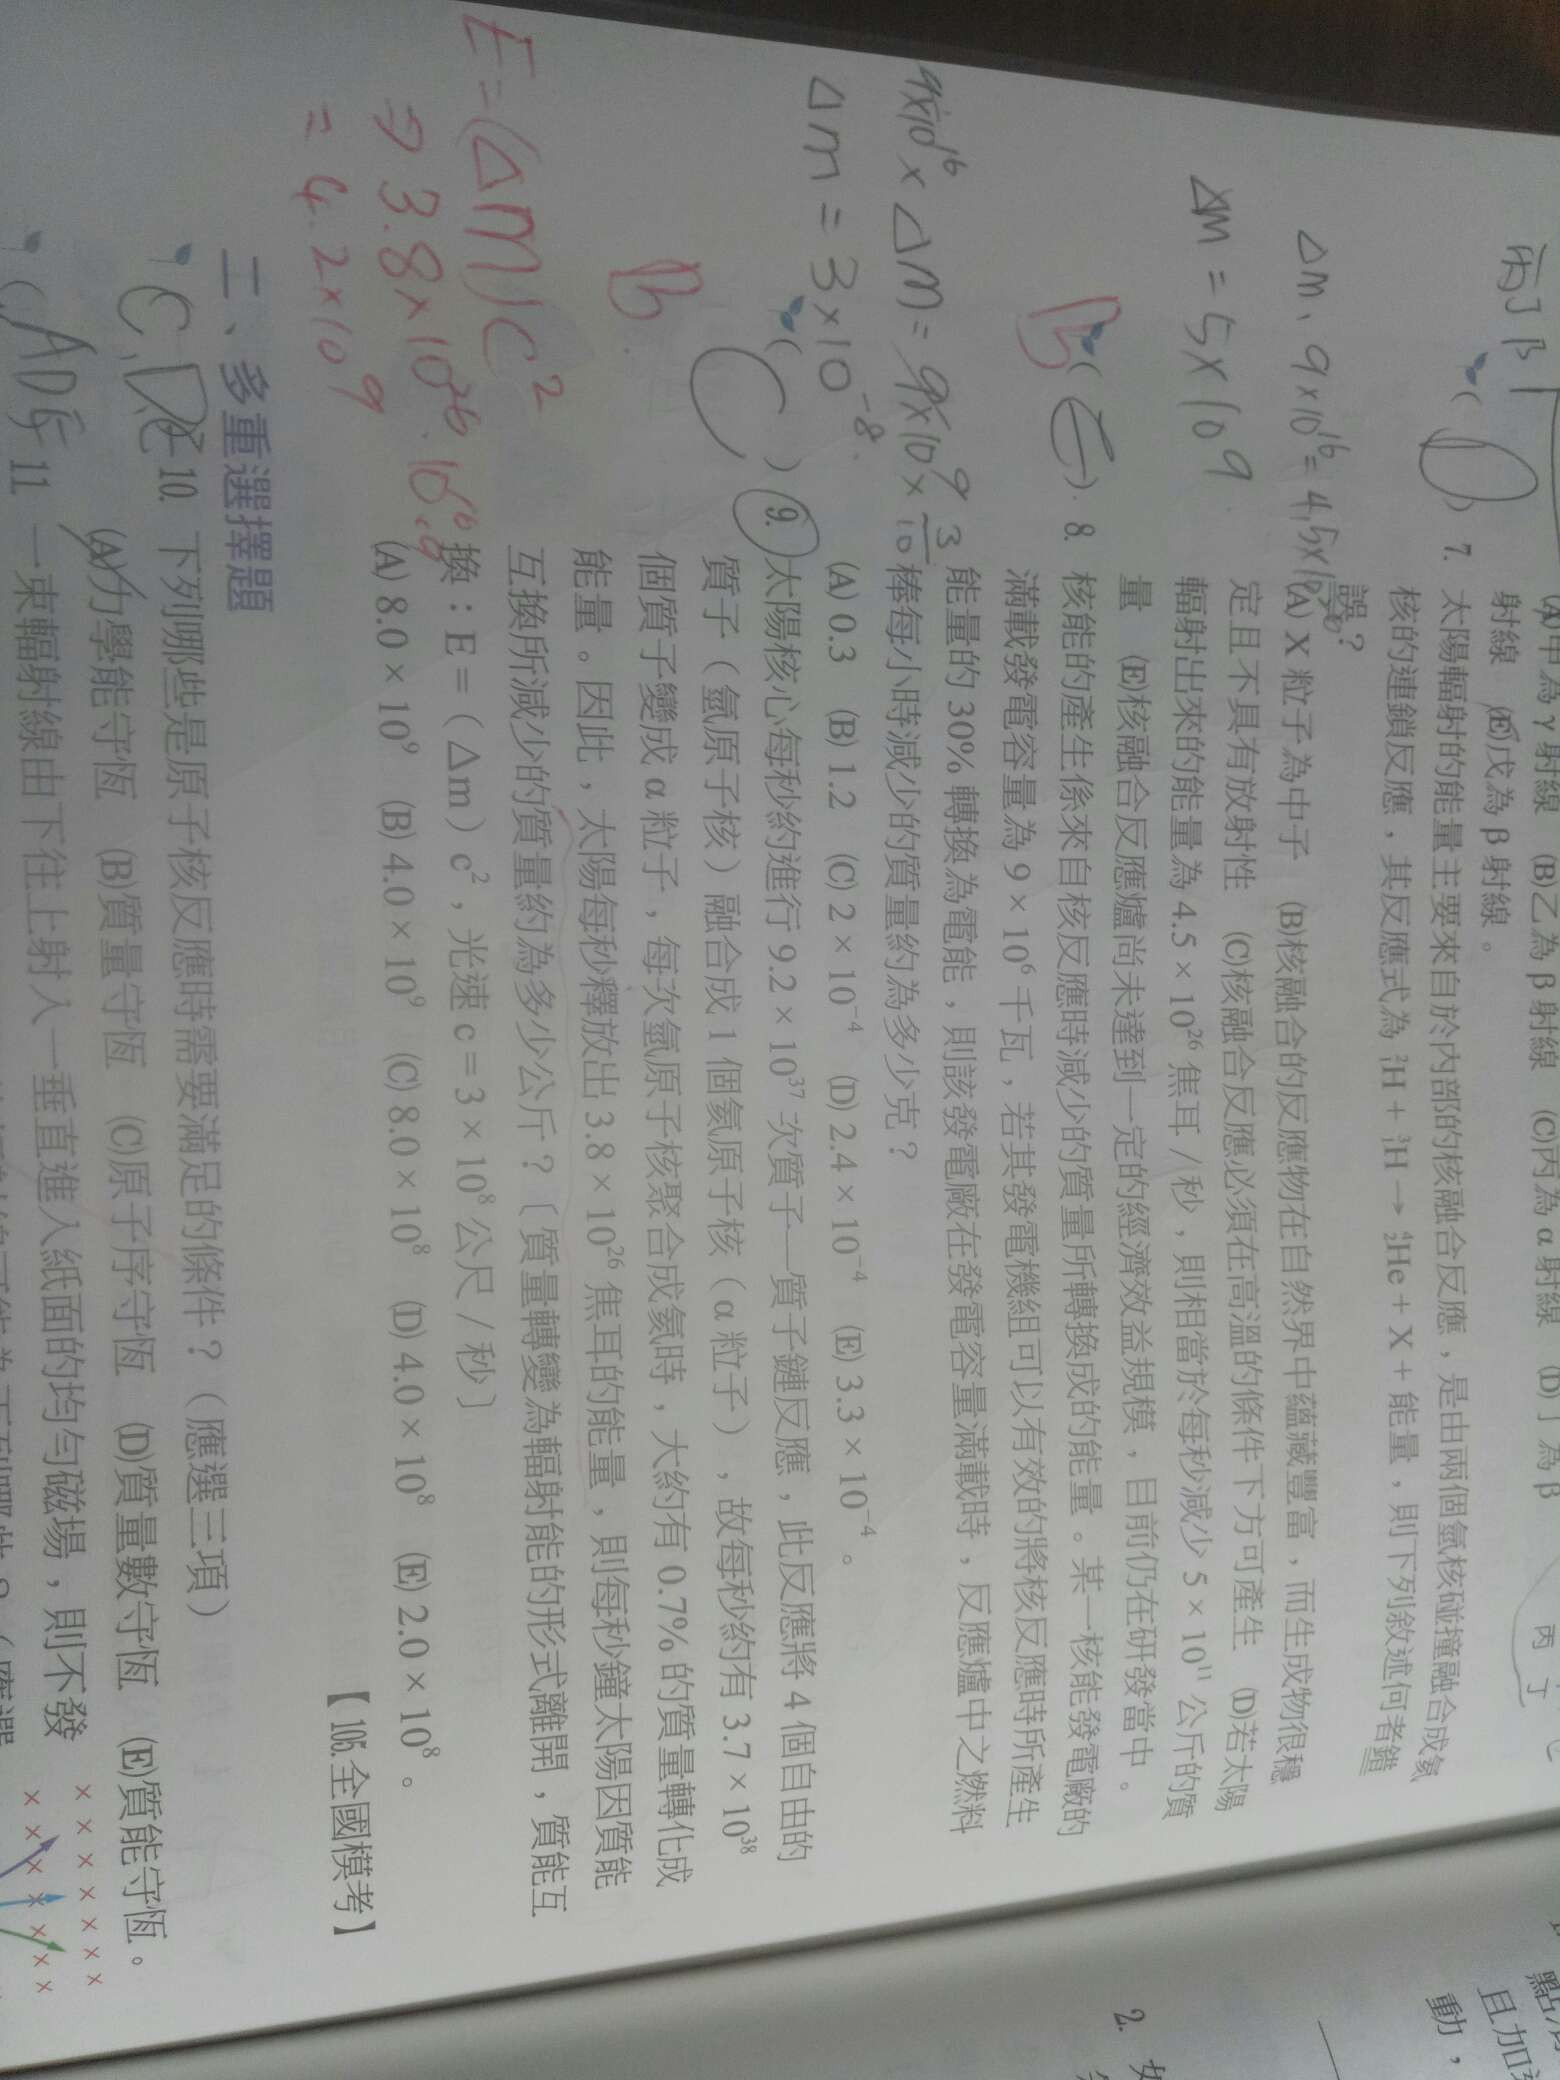 (A)甲為γ射線 (B)乙為β射線 (C)丙為α射線 (D)丁為β
射線 (E)戊為β射線。
丙 丁
7. 太陽輻射的能量主要來自於內部的核融合反應,是由兩個氫核碰撞融合成氦
核的連鎖反應,其反應式為 ²₁H + ³₁H → ⁴₂He + X + 能量,則下列敘述何者錯
誤?
(A) X 粒子為中子 (B)核融合的反應物在自然界中蘊藏豐富,而生成物很穩
定且不具有放射性 (C)核融合反應必須在高溫的條件下方可產生 (D)若太陽
輻射出來的能量為 4.5 × 10²⁶ 焦耳/秒,則相當於每秒減少 5 × 10¹¹ 公斤的質
量 (E)核融合反應爐尚未達到一定的經濟效益規模,目前仍在研發當中。
Δm · 9×10¹⁶ = 4.5×10²⁶
Δm = 5×10⁹
B
8. 核能的產生係來自核反應時減少的質量所轉換成的能量。某一核能發電廠的
滿載發電容量為 9 × 10⁶ 千瓦,若其發電機組可以有效的將核反應時所產生
能量的 30% 轉換為電能,則該發電廠在發電容量滿載時,反應爐中之燃料
棒每小時減少的質量約為多少克?
(A) 0.3 (B) 1.2 (C) 2 × 10⁻⁴ (D) 2.4 × 10⁻⁴ (E) 3.3 × 10⁻⁴。
9×10¹⁶ × Δm = 9×10⁹ × 3/10
Δm = 3×10⁻⁸
B
( C ) 9. 太陽核心每秒約進行 9.2 × 10³⁷ 次質子—質子鏈反應,此反應將 4 個自由的
質子(氫原子核)融合成 1 個氦原子核(α 粒子),故每秒約有 3.7 × 10³⁸
個質子變成 α 粒子,每次氫原子核聚合成氦時,大約有 0.7% 的質量轉化成
能量。因此,太陽每秒釋放出 3.8 × 10²⁶ 焦耳的能量,則每秒鐘太陽因質能
互換所減少的質量約為多少公斤?〔質量轉變為輻射能的形式離開,質能互
換:E =(Δm)c²,光速 c = 3 × 10⁸ 公尺/秒〕
(A) 8.0 × 10⁹ (B) 4.0 × 10⁹ (C) 8.0 × 10⁸ (D) 4.0 × 10⁸ (E) 2.0 × 10⁸。
【105.全國模考】
E = (Δm)c²
= 4.2×10⁹
二、多重選擇題
10. 下列哪些是原子核反應時需要滿足的條件?(應選三項)
(A)力學能守恆 (B)質量守恆 (C)原子序守恆 (D)質量數守恆 (E)質能守恆。
11 一束輻射線由下往上射入一垂直進入紙面的均勻磁場,則不發
2.
動,
且加